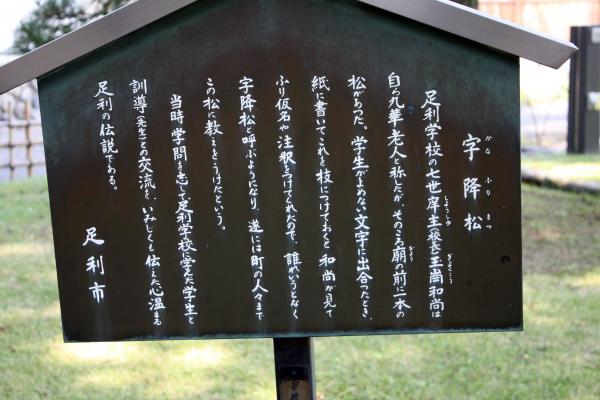 字降松
かな ふり まつ
足利学校の七世庠主(校長)玉崗和尚は
しょうしゅ ぎょくこう
自ら九華老人と称したが、そのころ廟の前に一本の
びょう
松があった。学生がよめない文字に出合ったとき、
紙に書いてこれを枝につけておくと、和尚が見て
ふり仮名や注釈をつけてくれたので、誰がいうとなく
字降松と呼ぶようになり、遂には町の人々まで
この松に教えをうけたという。
当時学問を志し足利学校に学んだ学生と
訓導(先生)との交流を、いみじくも伝えた心温まる
足利の伝説である。
足利市